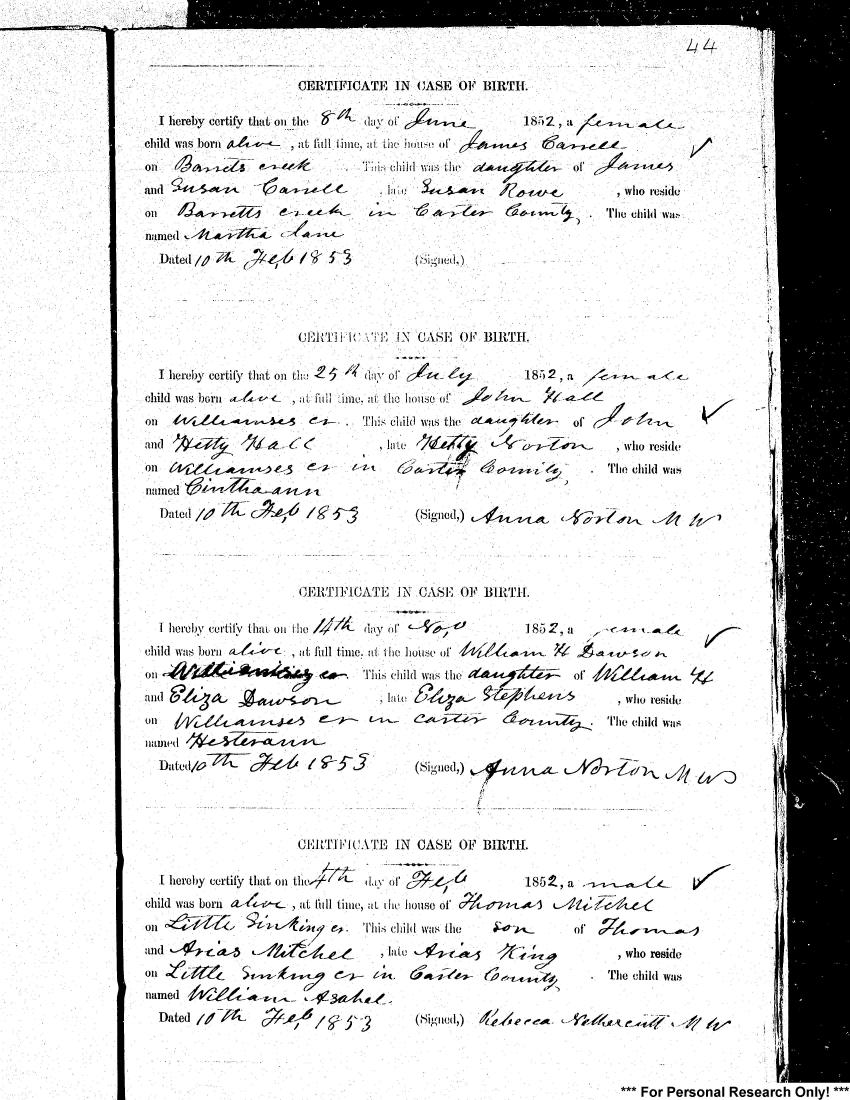 44
CERTIFICATE IN CASE OF BIRTH.
I hereby certify that on the 8th day of June 1852, a female
child was born alive, at full time, at the house of James Carrell
on Barrets creek. This child was the daughter of James
and Susan Carrell, late Susan Rowe, who reside
on Barretts creek in Carter County. The child was
named Martha Jane
Dated 10th Feb 1853 (Signed,)
CERTIFICATE IN CASE OF BIRTH.
I hereby certify that on the 25th day of July 1852, a female
child was born alive, at full time, at the house of John Hall
on Williamses cr. This child was the daughter of John
and Hetty Hall, late Hetty Norton, who reside
on Williamses cr in Carter County. The child was
named Cinthaann
Dated 10th Feb 1853 (Signed,) Anna Norton M W
CERTIFICATE IN CASE OF BIRTH.
I hereby certify that on the 14th day of Nov 1852, a female
child was born alive, at full time, at the house of William H Dawson
on cr This child was the daughter of William H
and Eliza Dawson, late Eliza Stephens, who reside
on Williamses cr in Carter County. The child was
named Hesterann
Dated 10th Feb 1853 (Signed,) Anna Norton M W
CERTIFICATE IN CASE OF BIRTH.
I hereby certify that on the 4th day of Feb 1852, a male
child was born alive, at full time, at the house of Thomas Mitchel
on Little Sinking cr. This child was the son of Thomas
and Arias Mitchel, late Arias King, who reside
on Little Sinking cr in Carter County. The child was
named William Asahel
Dated 10th Feb 1853 (Signed,) Rebecca Nethercutt M W
*** For Personal Research Only! ***